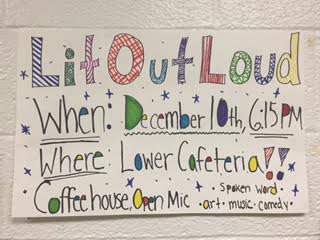 LitOutLoud
When: December 10th, 6:15 PM
Where: Lower Cafeteria!!
• Coffeehouse, Open Mic • Spoken Word
• art • music • comedy •